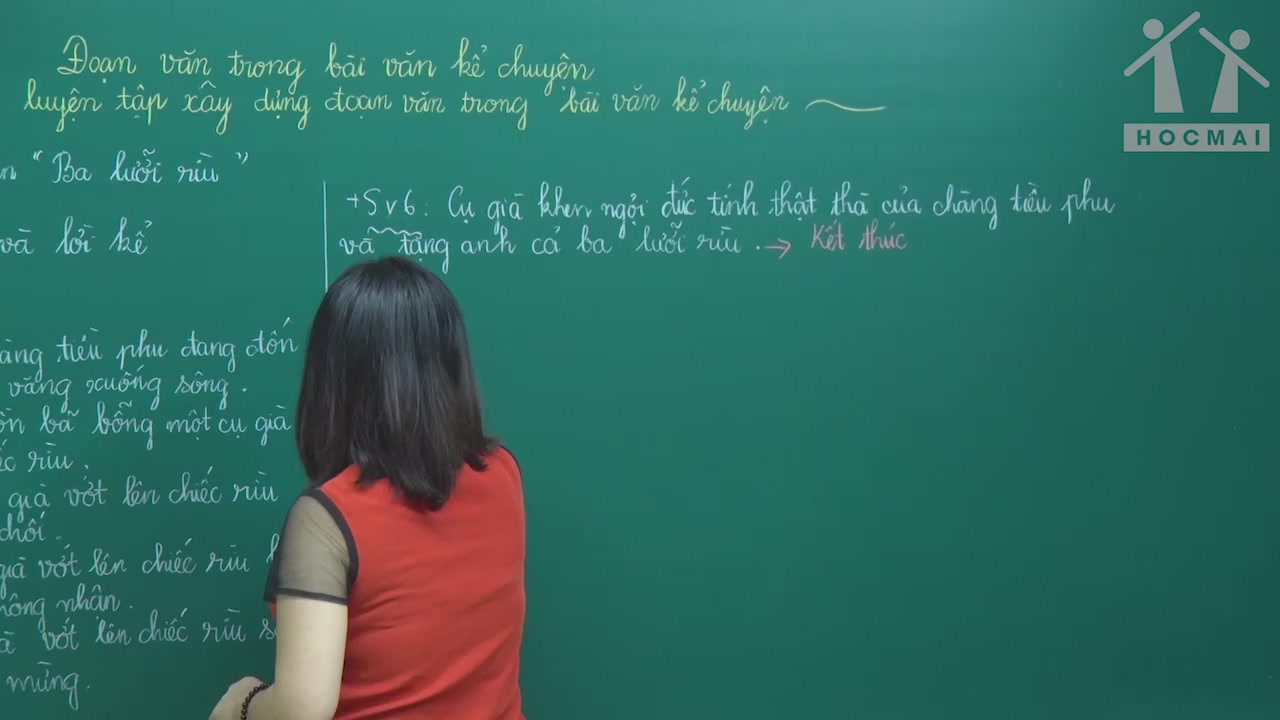 Đoạn văn trong bài văn kể chuyện
luyện tập xây dựng đoạn văn trong bài văn kể chuyện
HOCMAI
"Ba lưỡi rìu"
và lời kể
tiều phu đang đốn
văng xuống sông.
bã bỗng một cụ già
rìu.
già vớt lên chiếc rìu
chối.
già vớt lên chiếc rìu
nhận.
vớt lên chiếc rìu
mừng.
+Sv6: Cụ già khen ngợi đức tính thật thà của chàng tiều phu
và tặng anh cả ba lưỡi rìu. → Kết thúc